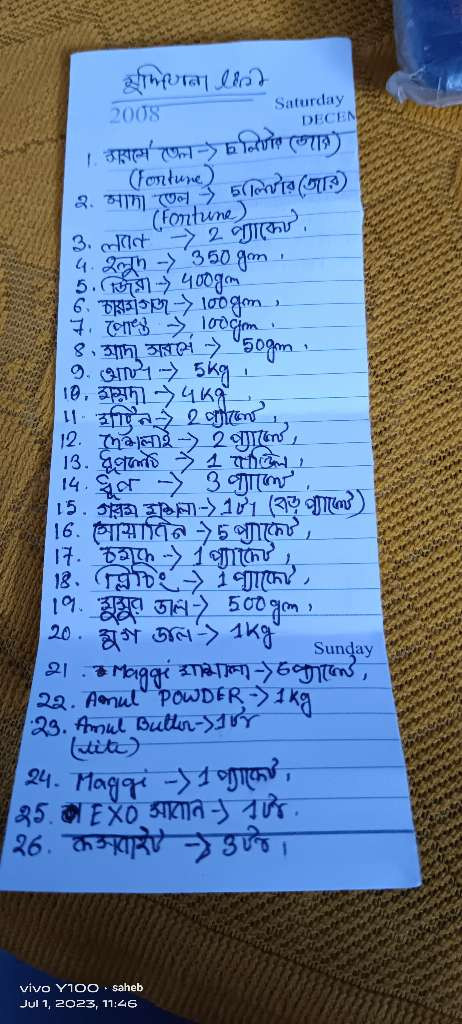 মুদিখানা List
2008
Saturday
DECEM
1. সরষে তেল → 5 লিটার (জার)
(Fortune)
2. সাদা তেল → 5 লিটার (জার)
(Fortune)
3. লবন → 2 প্যাকেট,
4. হলুদ → 350 gm,
5. জিরা → 400gm
6. চারমগজ → 100gm,
7. পোস্ত → 100gm,
8. সাদা সরষে → 50gm,
9. আটা → 5kg,
10. ময়দা → 4kg
11. → 2 প্যাকেট,
12. দেশলাই → 2 প্যাকেট,
13. ধূপকাঠি → 1 বান্ডিল,
14. ধূপ → 3 প্যাকেট,
15. গরম মশলা → 1টা (বড় প্যাকেট)
16. সোয়াবিন → 5 প্যাকেট,
17. → 1 প্যাকেট,
18. ব্লিচিং → 1 প্যাকেট,
19. মুসুর ডাল → 500gm,
20. মুগ ডাল → 1kg
Sunday
21. Maggi মশালা → 6 প্যাকেট,
22. Amul POWDER → 1kg
23. Amul Butter → 1টা
(lite)
24. Maggi → 1 প্যাকেট,
25. EXO সাবান → 1টা.
26. → 3টা,
vivo Y100 · saheb
Jul 1, 2023, 11:46